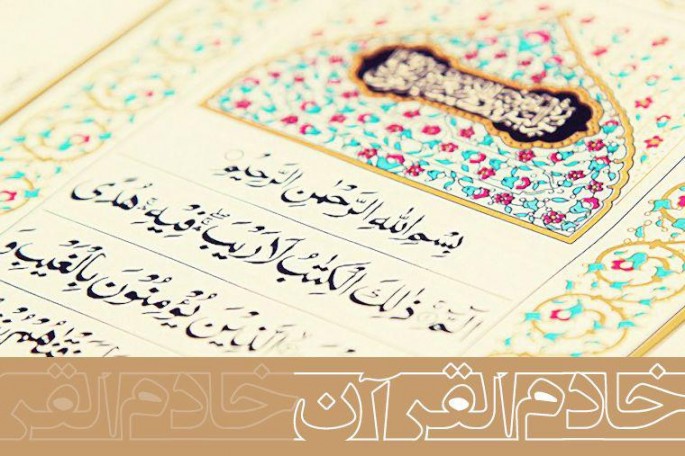 بِسْمِ اللهِ الرَّحْمٰنِ الرَّحیمِ
الم ذٰلِكَ الْكِتٰبُ لَا رَیْبَ فیهِ هُدًی
اَلَّذینَ یُؤْمِنُونَ بِالْغَیْبِ وَ
خادم القرآن
خادم القر